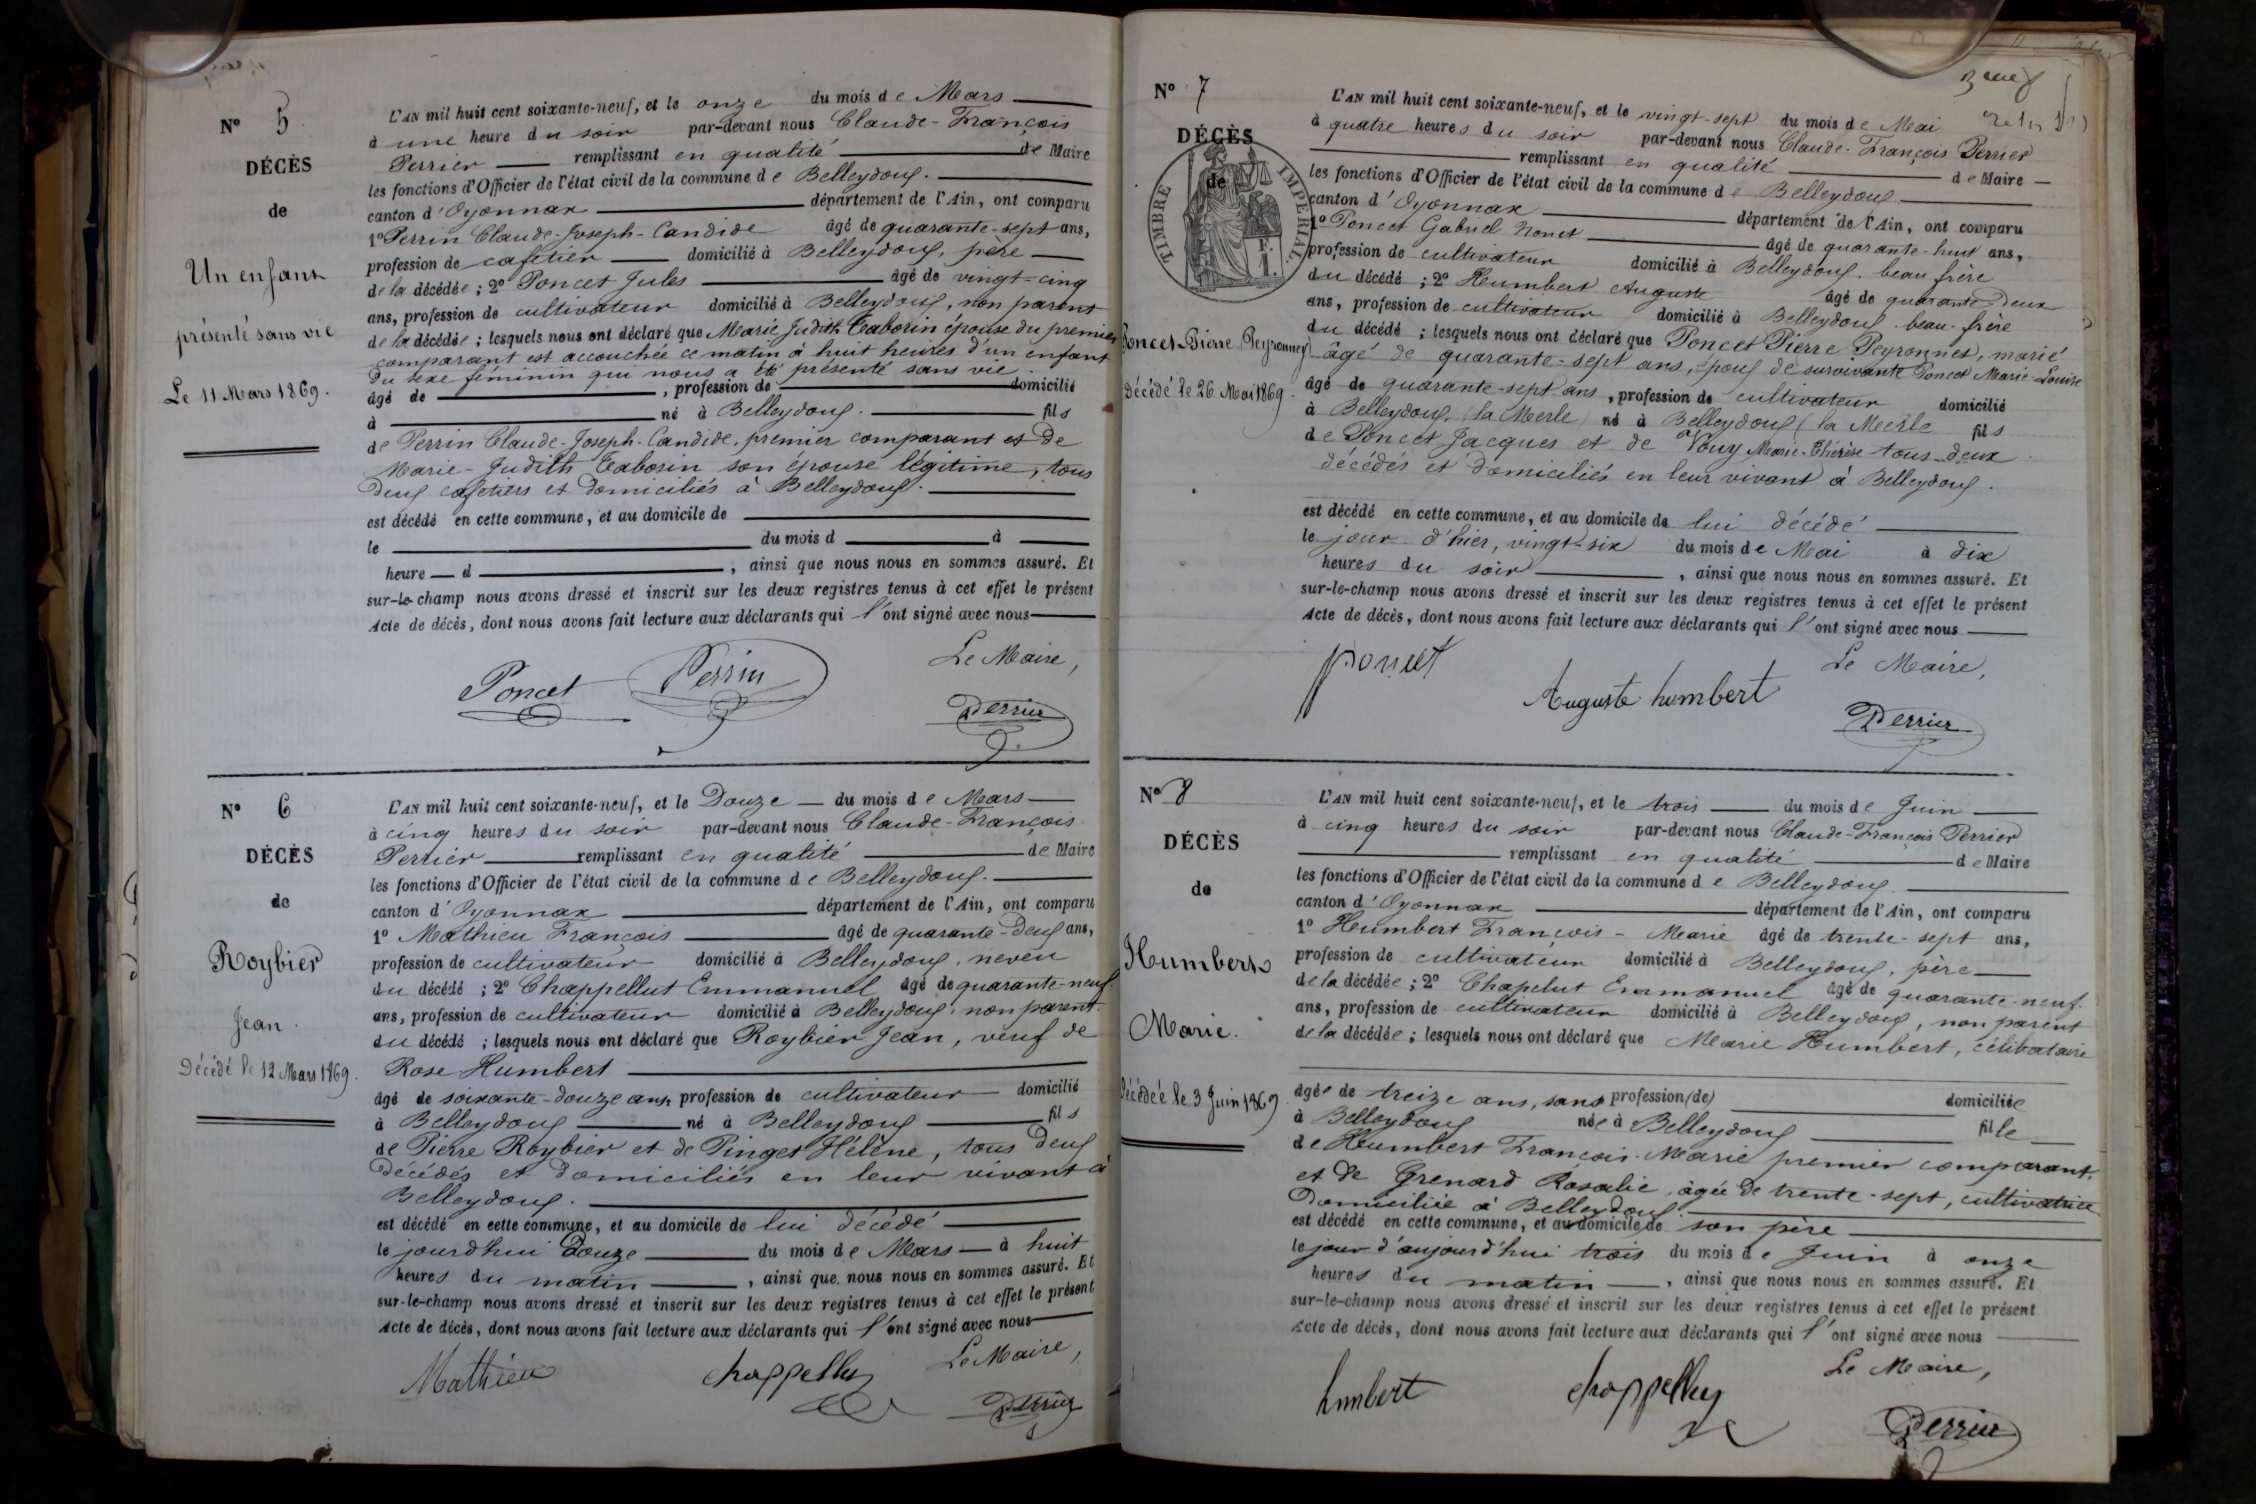 N° 5
DÉCÈS
de
Un enfant
présenté sans vie
Le 11 Mars 1869.
L'AN mil huit cent soixante-neuf, et le onze du mois de Mars
à une heure du soir par-devant nous Claude-François
Perrier remplissant en qualité de Maire
les fonctions d'Officier de l'état civil de la commune de Belleydoux.
canton d'Oyonnax département de l'Ain, ont comparu
1° Perrin Claude-Joseph-Candide âgé de quarante-sept ans,
profession de cafetier domicilié à Belleydoux, père
de la décédée ; 2° Poncet Jules âgé de vingt-cinq
ans, profession de cultivateur domicilié à Belleydoux, non parent
de la décédée ; lesquels nous ont déclaré que Marie Judith Taborin épouse du premier
comparant est accouchée ce matin à huit heures d'un enfant
du sexe féminin qui nous a été présenté sans vie.
âgé de , profession de domicilié
à né à Belleydoux. fils
de Perrin Claude-Joseph-Candide, premier comparant et de
Marie-Judith Taborin son épouse légitime, tous
deux cafetiers et domiciliés à Belleydoux.
est décédé en cette commune, et au domicile de
le du mois d à
heure d , ainsi que nous nous en sommes assuré. Et
sur-le-champ nous avons dressé et inscrit sur les deux registres tenus à cet effet le présent
Acte de décès, dont nous avons fait lecture aux déclarants qui l'ont signé avec nous
Le Maire,
Poncet Perrin
Perrier
N° 6
DÉCÈS
de
Roybier
Jean.
Décédé le 12 Mars 1869.
L'AN mil huit cent soixante-neuf, et le Douze du mois de Mars
à cinq heures du soir par-devant nous Claude-François
Perrier remplissant en qualité de Maire
les fonctions d'Officier de l'état civil de la commune de Belleydoux.
canton d'Oyonnax département de l'Ain, ont comparu
1° Mathieu François âgé de quarante-deux ans,
profession de cultivateur domicilié à Belleydoux, neveu
du décédé ; 2° Chappellut Emmanuel âgé de quarante-neuf
ans, profession de cultivateur domicilié à Belleydoux, non parent
du décédé ; lesquels nous ont déclaré que Roybier Jean, veuf de
Rose Humbert
âgé de soixante-douze ans, profession de cultivateur domicilié
à Belleydoux né à Belleydoux fils
de Pierre Roybier et de Pinget Hélène, tous deux
décédés et domiciliés en leur vivant à
Belleydoux.
est décédé en cette commune, et au domicile de lui décédé
le jourd'hui Douze du mois de Mars à huit
heures du matin , ainsi que nous nous en sommes assuré. Et
sur-le-champ nous avons dressé et inscrit sur les deux registres tenus à cet effet le présent
Acte de décès, dont nous avons fait lecture aux déclarants qui l'ont signé avec nous
Le Maire,
Mathieu Chappelluy
Perrier
N° 7
DÉCÈS
de
TIMBRE IMPÉRIAL.
Poncet-Pierre Peyronnet
Décédé le 26 Mai 1869.
L'AN mil huit cent soixante-neuf, et le vingt-sept du mois de Mai
à quatre heures du soir par-devant nous Claude-François Perrier
remplissant en qualité de Maire
les fonctions d'Officier de l'état civil de la commune de Belleydoux
canton d'Oyonnax département de l'Ain, ont comparu
1° Poncet Gabriel âgé de quarante-huit ans,
profession de cultivateur domicilié à Belleydoux. beau frère
du décédé ; 2° Humbert Auguste âgé de quarante-deux
ans, profession de cultivateur domicilié à Belleydoux. beau-frère
du décédé ; lesquels nous ont déclaré que Poncet Pierre Peyronnet, marié
âgé de quarante-sept ans, époux de survivante Poncet Marie-Louise
âgé de quarante-sept ans, profession de cultivateur domicilié
à Belleydoux (la Merle) né à Belleydoux (la Meerle fils
de Poncet Jacques et de Vouy Marie-Thérèse tous-deux
décédés et domiciliés en leur vivant à Belleydoux.
est décédé en cette commune, et au domicile de lui décédé
le jour d'hier, vingt-six du mois de Mai à dix
heures du soir , ainsi que nous nous en sommes assuré. Et
sur-le-champ nous avons dressé et inscrit sur les deux registres tenus à cet effet le présent
Acte de décès, dont nous avons fait lecture aux déclarants qui l'ont signé avec nous
Le Maire,
poncet
Auguste humbert
Perrier
N° 8
DÉCÈS
de
Humbert
Marie.
Décédée le 3 Juin 1869.
L'AN mil huit cent soixante-neuf, et le trois du mois de Juin
à cinq heures du soir par-devant nous Claude-François Perrier
remplissant en qualité de Maire
les fonctions d'Officier de l'état civil de la commune de Belleydoux.
canton d'Oyonnax département de l'Ain, ont comparu
1° Humbert François-Marie âgé de trente-sept ans,
profession de cultivateur domicilié à Belleydoux, père
de la décédée ; 2° Chapelut Emmanuel âgé de quarante-neuf
ans, profession de cultivateur domicilié à Belleydoux, non parent
de la décédée ; lesquels nous ont déclaré que Marie Humbert, célibataire
âgée de treize ans, sans profession (de) domiciliée
à Belleydoux née à Belleydoux fille
de Humbert François-Marie premier comparant,
et de Grenard Rosalie, âgée de trente-sept, cultivatrice
Domiciliée à Belleydoux.
est décédé en cette commune, et au domicile de son père
le jour d'aujourd'hui trois du mois de Juin à onze
heures du matin , ainsi que nous nous en sommes assuré. Et
sur-le-champ nous avons dressé et inscrit sur les deux registres tenus à cet effet le présent
Acte de décès, dont nous avons fait lecture aux déclarants qui l'ont signé avec nous
Le Maire,
humbert Chappelluy
Perrier